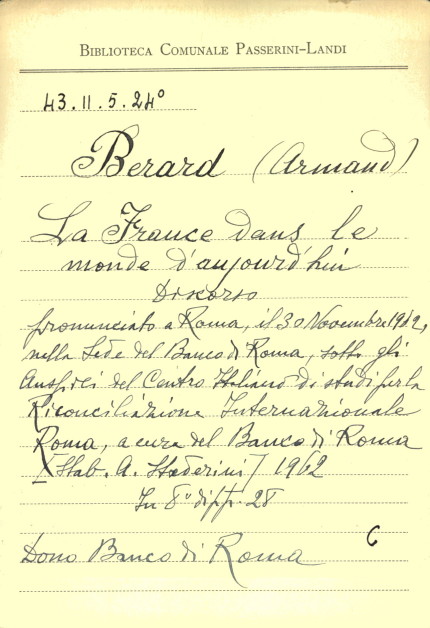 BIBLIOTECA COMUNALE PASSERINI-LANDI
43.II.5.24°
Berard (Armand)
La France dans le
monde d'aujourd'hui
Discorso
pronunciato a Roma, il 30 Novembre 1962,
nella Sede del Banco di Roma, sotto gli
Auspici del Centro Italiano di studi per la
Riconciliazione Internazionale
Roma, a cura del Banco di Roma
[Stab. A. Staderini] 1962
In 8° di pp. 28
Dono Banco di Roma
C